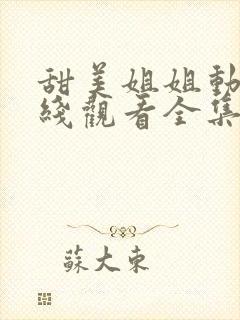 甜美姐姐動
綫觀看全集
蘇大東